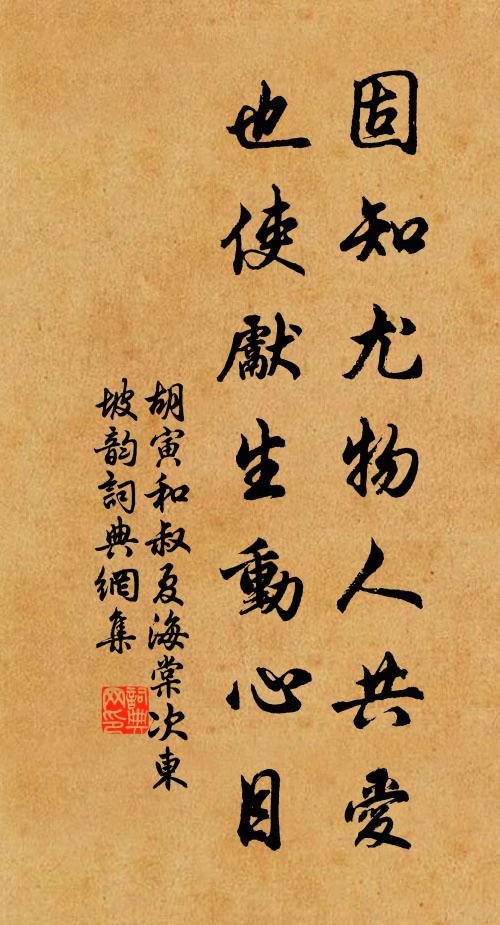 固知尤物人共愛
也使獻生動心目
胡寅和叔夏海棠次東
坡韵詞典網集
詞典
网印